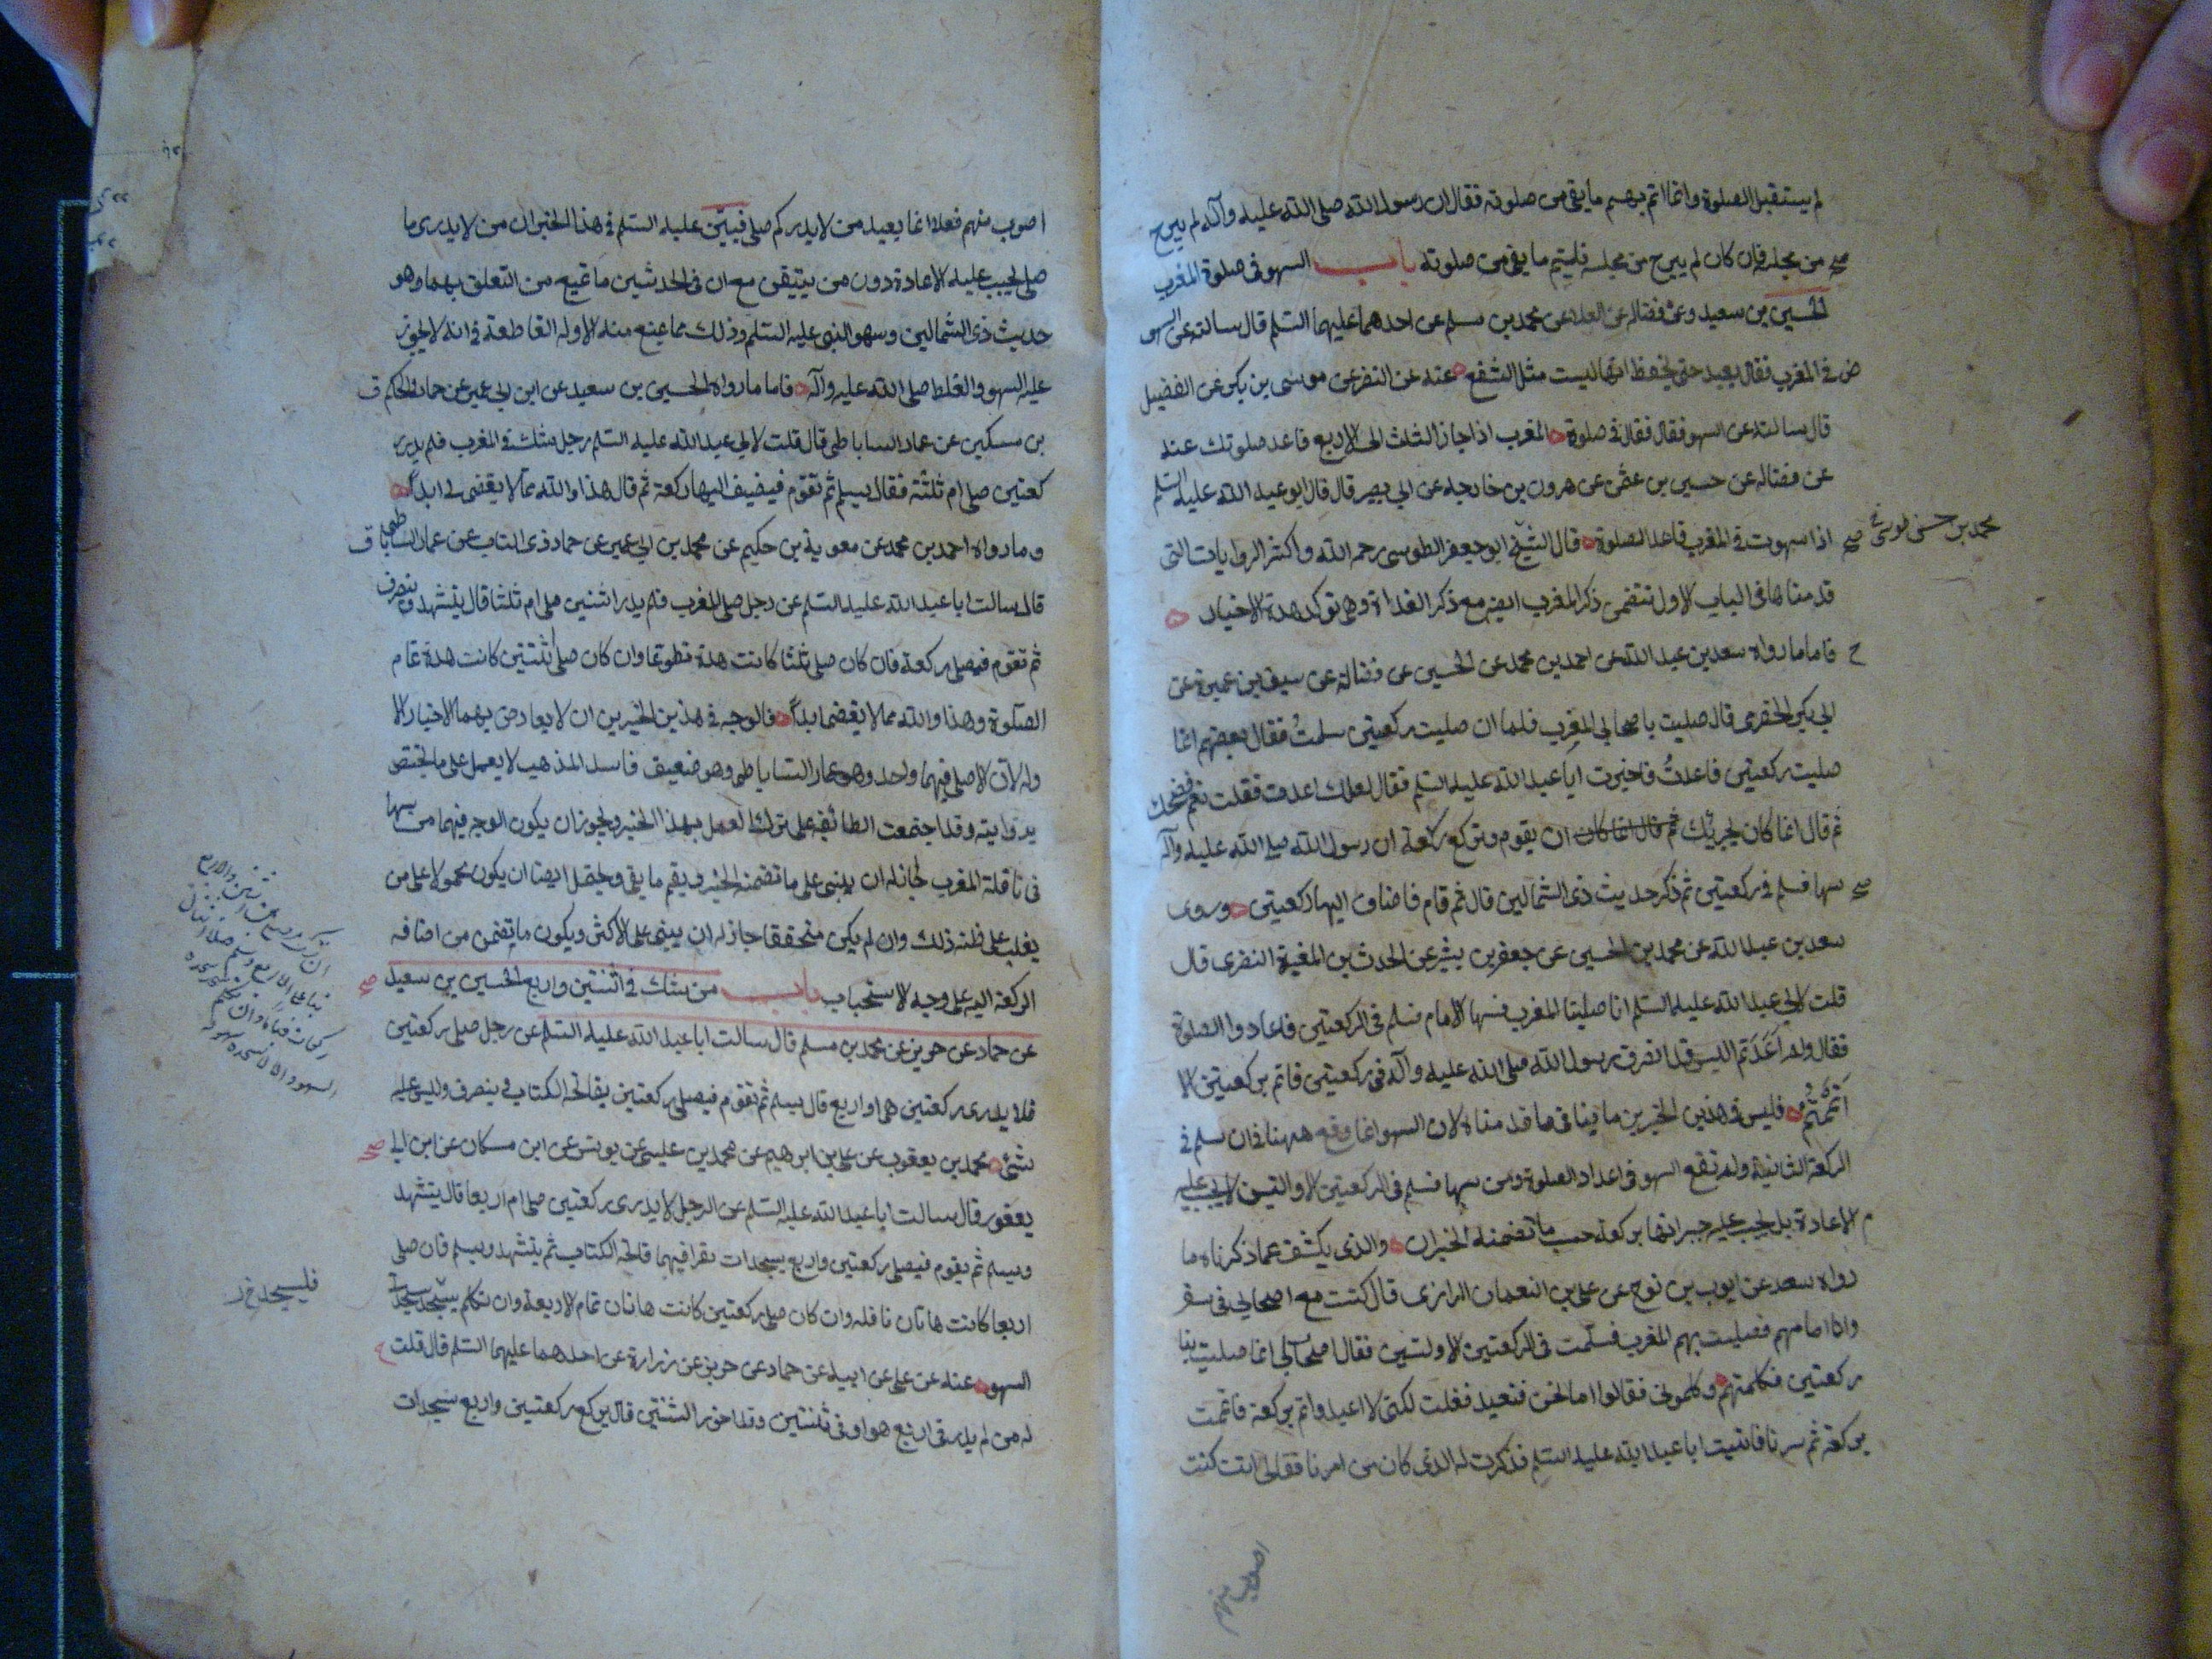 لم يستقبل الصلوة وانما اتم بهم ما بقى من صلوته فقال ان رسول الله صلى الله عليه وآله لم يبرح
من مجلسه فان كان لم يبرح من مجلسه فليتم ما بقى من صلوته باب السهو فى صلوة المغرب
الحسين بن سعيد عن فضاله عن العلا عن محمد بن مسلم عن احدهما عليهما السلم قال سالته عن السهو
فى المغرب فقال يعيد حتى يحفظ انها ليست مثل الشفع عنه عن النضر عن موسى بن بكر عن الفضيل
قال سالته عن السهو فقال فقال فى صلوة المغرب اذا جاز الثلث الى الاربع فاعد صلوتك عنه
عن فضاله عن حسين بن عثمن عن هرون بن خارجه عن ابى بصير قال قال ابو عبد الله عليه السلم
اذا سهوت فى المغرب فاعد الصلوة قال الشيخ ابو جعفر الطوسى رحمه الله واكثر الروايات التى
محمد بن حسن طوسى
قد مناها فى الباب الاول تتضمن ذكر المغرب ايضا مع ذكر الغداة وهى توكد هذه الاخبار
فاما ما رواه سعد بن عبد الله عن احمد بن محمد عن الحسين عن فضالة عن سيف بن عميرة عن
ابى بكر الحضرمى قال صليت باصحابى المغرب فلما ان صليت ركعتين سلمت فقال بعضهم انما
صليت ركعتين فاعدت فاخبرت ابا عبد الله عليه السلم فقال لعلك اعدت فقلت نعم فضحك
ثم قال انما كان يجزيك ثم قال انما كان ان يقوم وتركع ركعة ان رسول الله صلى الله عليه وآله
سها فسلم فى ركعتين ثم ذكر حديث ذى الشمالين قال ثم قام فاضاف اليها ركعتين وروى
سعد بن عبد الله عن محمد بن الحسين عن جعفر بن بشير عن الحرث بن المغيرة النضرى قال
قلت لابى عبد الله عليه السلم انا صلينا المغرب فسها الامام فسلم فى الركعتين فاعادوا الصلوة
فقال ولم اعدتم اليس قد انصرف رسول الله صلى الله عليه وآله فى ركعتين فاتم بركعتين الا
اتممتم فليس فى هذين الخبرين ما ينافى ما قدمناه لان السهو انما وقع ههنا فى ان سلم فى
الركعة الثانية ولم تقع السهو فى اعداد الصلوة ومن سها فسلم فى الركعتين الاوليين لا يجب عليه
الاعادة بل يجب عليه جبرانها بركعة حسب ما تضمنه الخبران والذى يكشف عما ذكرناه ما
رواه سعد عن ايوب بن نوح عن على بن النعمان الرازى قال كنت مع اصحابى فى سفر
وانا امامهم فصليت بهم المغرب فسلمت فى الركعتين الاولتين فقال اصحابى انما صليت بنا
ركعتين فكلمتهم وكلمونى فقالوا اما نحن فنعيد فقلت لكنى لا اعيد واتم بركعة فاتممت
بركعة ثم سرنا فاتيت ابا عبد الله عليه السلم فذكرت له الذى كان من امرنا فقال انت كنت
اصوب منهم
اصوب منهم فعلا انما يعيد من لا يدر كم صلى فبين عليه السلم فى هذا الخبر ان من لا يدرى ما
صلى يجب عليه الاعادة دون من يتيقن مع ان فى الحدثين ما يمنع من التعلق بهما وهو
حديث ذى الشمالين وسهو النبى عليه السلم وذلك مما يمنع منه الادلة القاطعة فى انه لا يجوز
عليه السهو والغلط صلى الله عليه وآله فاما ما رواه الحسين بن سعيد عن ابن ابى عمير عن حماد والحكم
بن مسكين عن عمار الساباطى قال قلت لابى عبد الله عليه السلم رجل شك فى المغرب فلم يدر
كعتين صلى ام ثلثة فقال يسلم ثم تقوم فيضيف اليها ركعة ثم قال هذا والله مما لا يقضى لى ابدا
وما رواه احمد بن محمد عن معوية بن حكيم عن محمد بن ابى عمير عن حماد ذى الناب عن عمار الساباطى
قال سالت ابا عبد الله عليه السلم عن رجل صلى المغرب فلم يدر اثنتين صلى ام ثلثا قال يتشهد وينصرف
ثم تقوم فيصلى ركعة فان كان صلى ثلثا كانت هذه تطوعا وان كان صلى اثنتين كانت هذه تمام
الصلوة وهذا والله مما لا يقضى ابدا فالوجه فى هذين الخبرين ان لا يعارض بهما الاخبار الا
وله لان الاصل فيهما واحد وهو عمار الساباطى وهو ضعيف فاسد المذهب لا يعمل على ما يختص
بروايته وقد اجتمعت الطائفة على ترك العمل بهذا الخبر ويجوز ان يكون الوجه فيهما من سها
فى نافلة المغرب لجاز له ان يبنى على ما تضمنه الخبر ويقيم ما بقى ويحتمل ايضا ان يكون محمولا على من
يغلب على ظنه ذلك وان لم يكن متحققا جاز له ان يبنى على الاكثر ويكون ما تضمن من اضافه
الركعة اليه على وجه الاستحباب باب من شك فى اثنتين واربع الحسين بن سعيد
عن حماد عن حريز عن محمد بن مسلم قال سالت ابا عبد الله عليه السلم عن رجل صلى ركعتين
فلا يدرى ركعتين هى او اربع قال يسلم ثم تقوم فيصلى ركعتين بفاتحة الكتاب وينصرف وليس عليه
شئ محمد بن يعقوب عن على بن ابرهيم عن محمد بن عيسى عن يونس عن ابن مسكان عن ابن ابى
يعفور قال سالت ابا عبد الله عليه السلم عن الرجل لا يدرى ركعتين صلى ام اربعا قال يتشهد
ويسلم ثم يقوم فيصلى ركعتين واربع سجدات يقرا فيهما فاتحة الكتاب ثم يتشهد ويسلم فان صلى
اربعا كانت هاتان نافله وان كان صلى ركعتين كانت هاتان تمام الاربعة وان تكلم يسجد سجدتا
فليسجد خ
السهو عنه عن على عن ابيه عن حماد عن حريز عن زرارة عن احدهما عليهما السلم قال قلت
له من لم يدر فى اربع هو او فى ثنتين وقد احرز الثنتين قال يركع ركعتين واربع سجدات